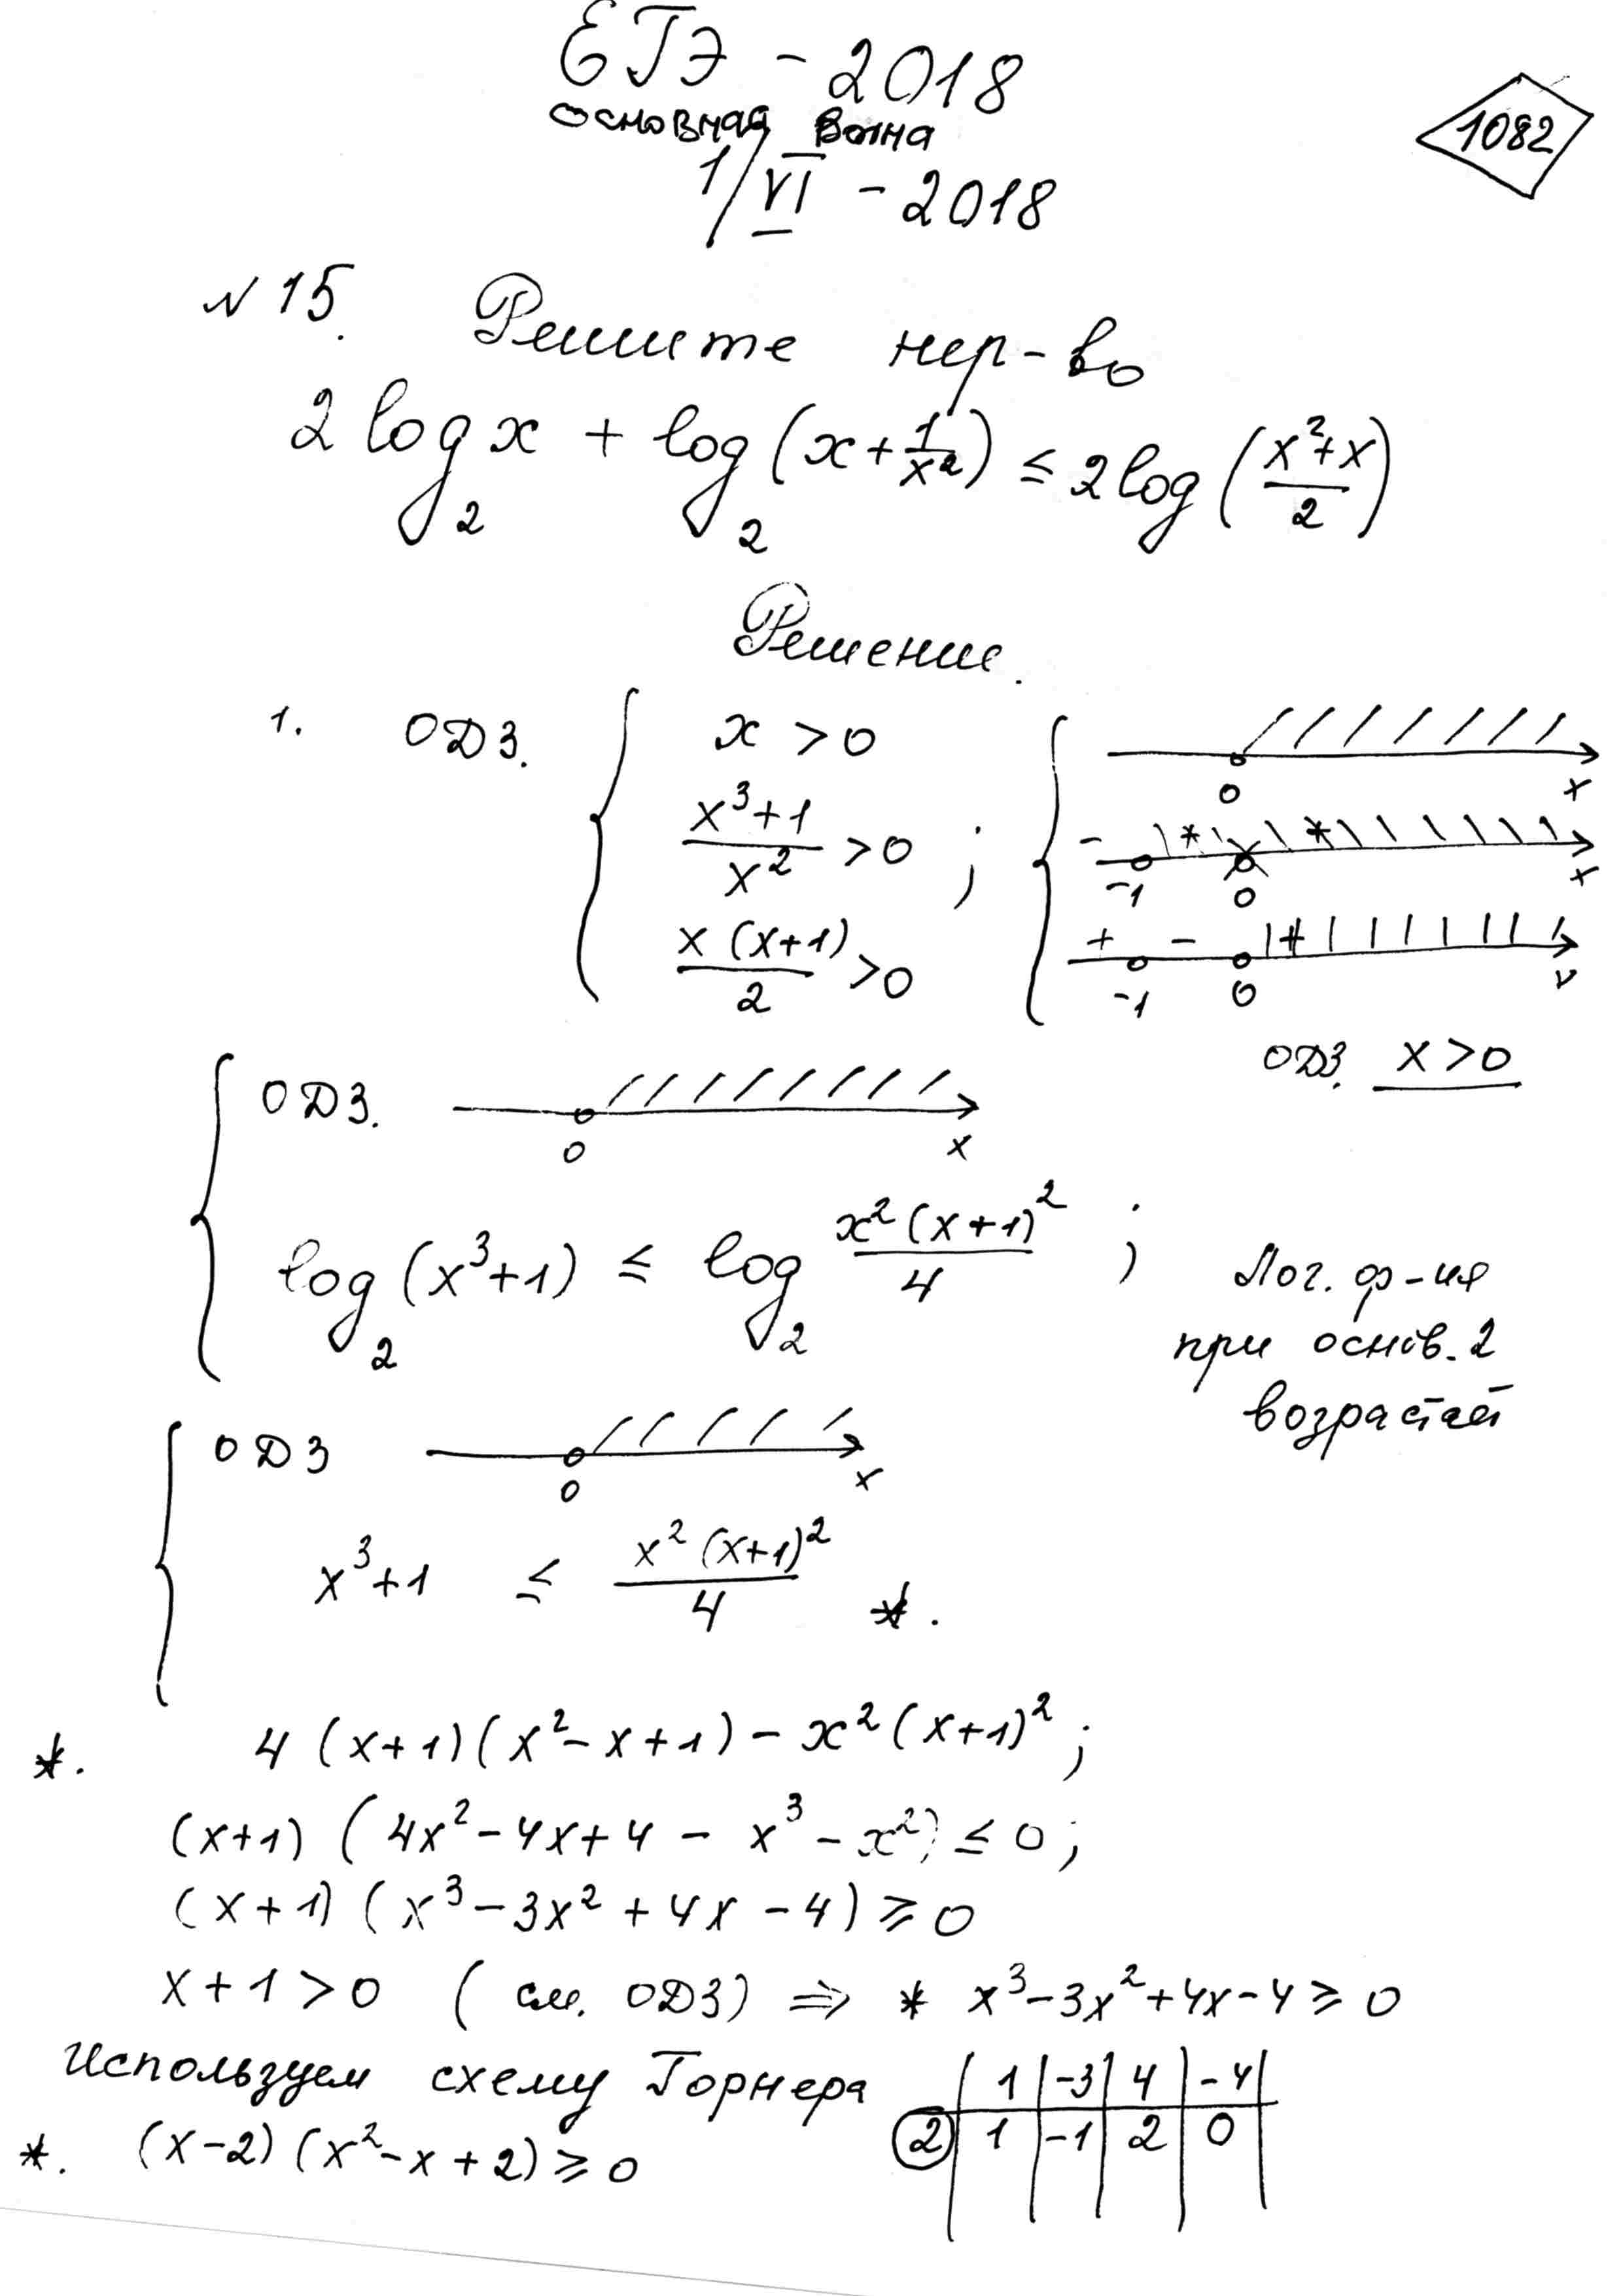 ЕГЭ - 2018
основная волна
1/VI - 2018
1082
N 15. Решите нер-во
2 log₂ x + log₂ (x + 1/x²) ≤ 2 log ((x² + x)/2)
Решение.
1. ОДЗ. { x > 0
(x³ + 1)/x² > 0 ;
x (x+1)/2 > 0
0 x
- + + -1 0 x
+ - + -1 0 x
ОДЗ. x > 0
{ ОДЗ. 0 x
log₂ (x³+1) ≤ log₂ x² (x+1)²/4 ;
Лог. ф-ия
при основ. 2
возрастает
{ ОДЗ 0 x
x³+1 ≤ x² (x+1)²/4 *.
*. 4 (x+1)(x² - x + 1) - x² (x+1)² ;
(x+1) (4x² - 4x + 4 - x³ - x²) ≤ 0 ;
(x+1) (x³ - 3x² + 4x - 4) ≥ 0
x + 1 > 0 (см. ОДЗ) ⇒ * x³ - 3x² + 4x - 4 ≥ 0
Используем схему Горнера
| 1 | -3 | 4 | -4 |
2 | 1 | -1 | 2 | 0 |
*. (x-2) (x² - x + 2) ≥ 0